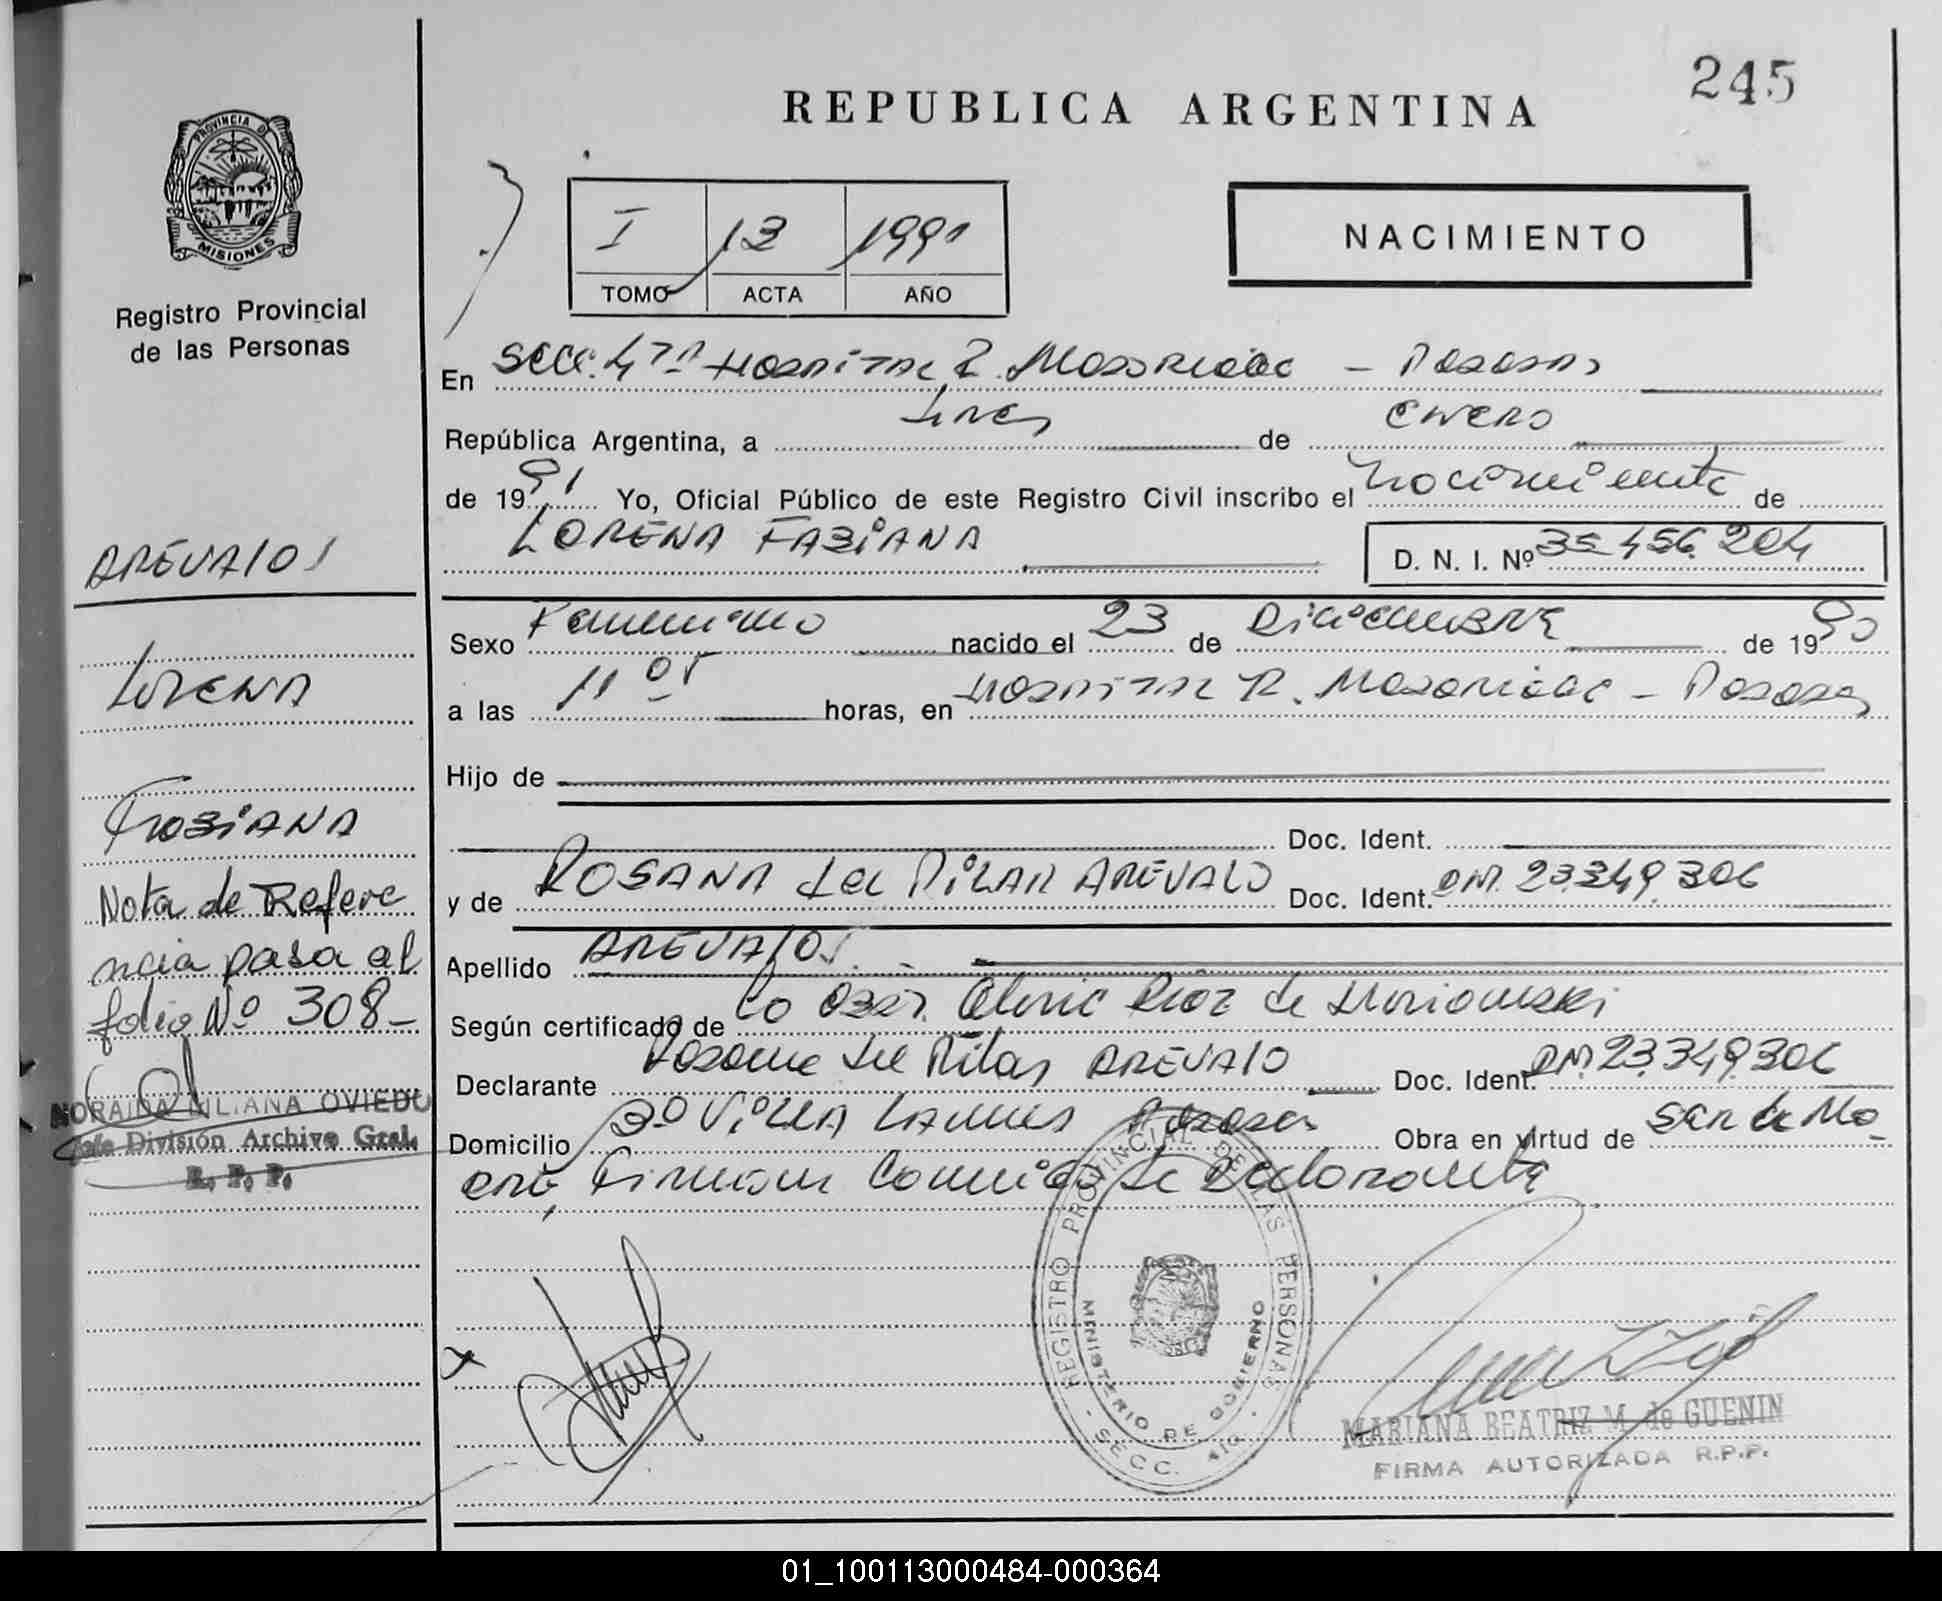 245
REPUBLICA ARGENTINA
PROVINCIA D
MISIONES
Registro Provincial
de las Personas
I 13 1991
TOMO ACTA AÑO
NACIMIENTO
En SECC. 4ta HOSPITAL R. Madariaga - Posadas
República Argentina, a tres de enero
de 1991 Yo, Oficial Público de este Registro Civil inscribo el nacimiento de
LORENA FABIANA D. N. I. Nº 35.456.204
Sexo Femenino nacido el 23 de Diciembre de 1990
a las 11 05 horas, en HOSPITAL R. Madariaga - Posadas
Hijo de
Doc. Ident.
y de ROSANA del PILAR AREVALO Doc. Ident. DNI. 23.349.306
Apellido AREVALOS
Según certificado de la Obst. Diaz de
Declarante Rosana del Pilar AREVALO Doc. Ident. DNI. 23.349.306
Domicilio Bº Villa Lanus Posadas Obra en virtud de ser la Ma
dre Firman Conmigo la Declarante
AREVALOS
LORENA
FABIANA
Nota de Refere
ncia pasa al
folio Nº 308-
NORAIDA LILIANA OVIEDO
Jefe División Archivo Gral.
R. P. P.
REGISTRO PROVINCIAL DE LAS PERSONAS
MINISTERIO DE GOBIERNO
- SECC. 4ta -
MARIANA BEATRIZ M. de GUENIN
FIRMA AUTORIZADA R.P.P.
01_100113000484-000364